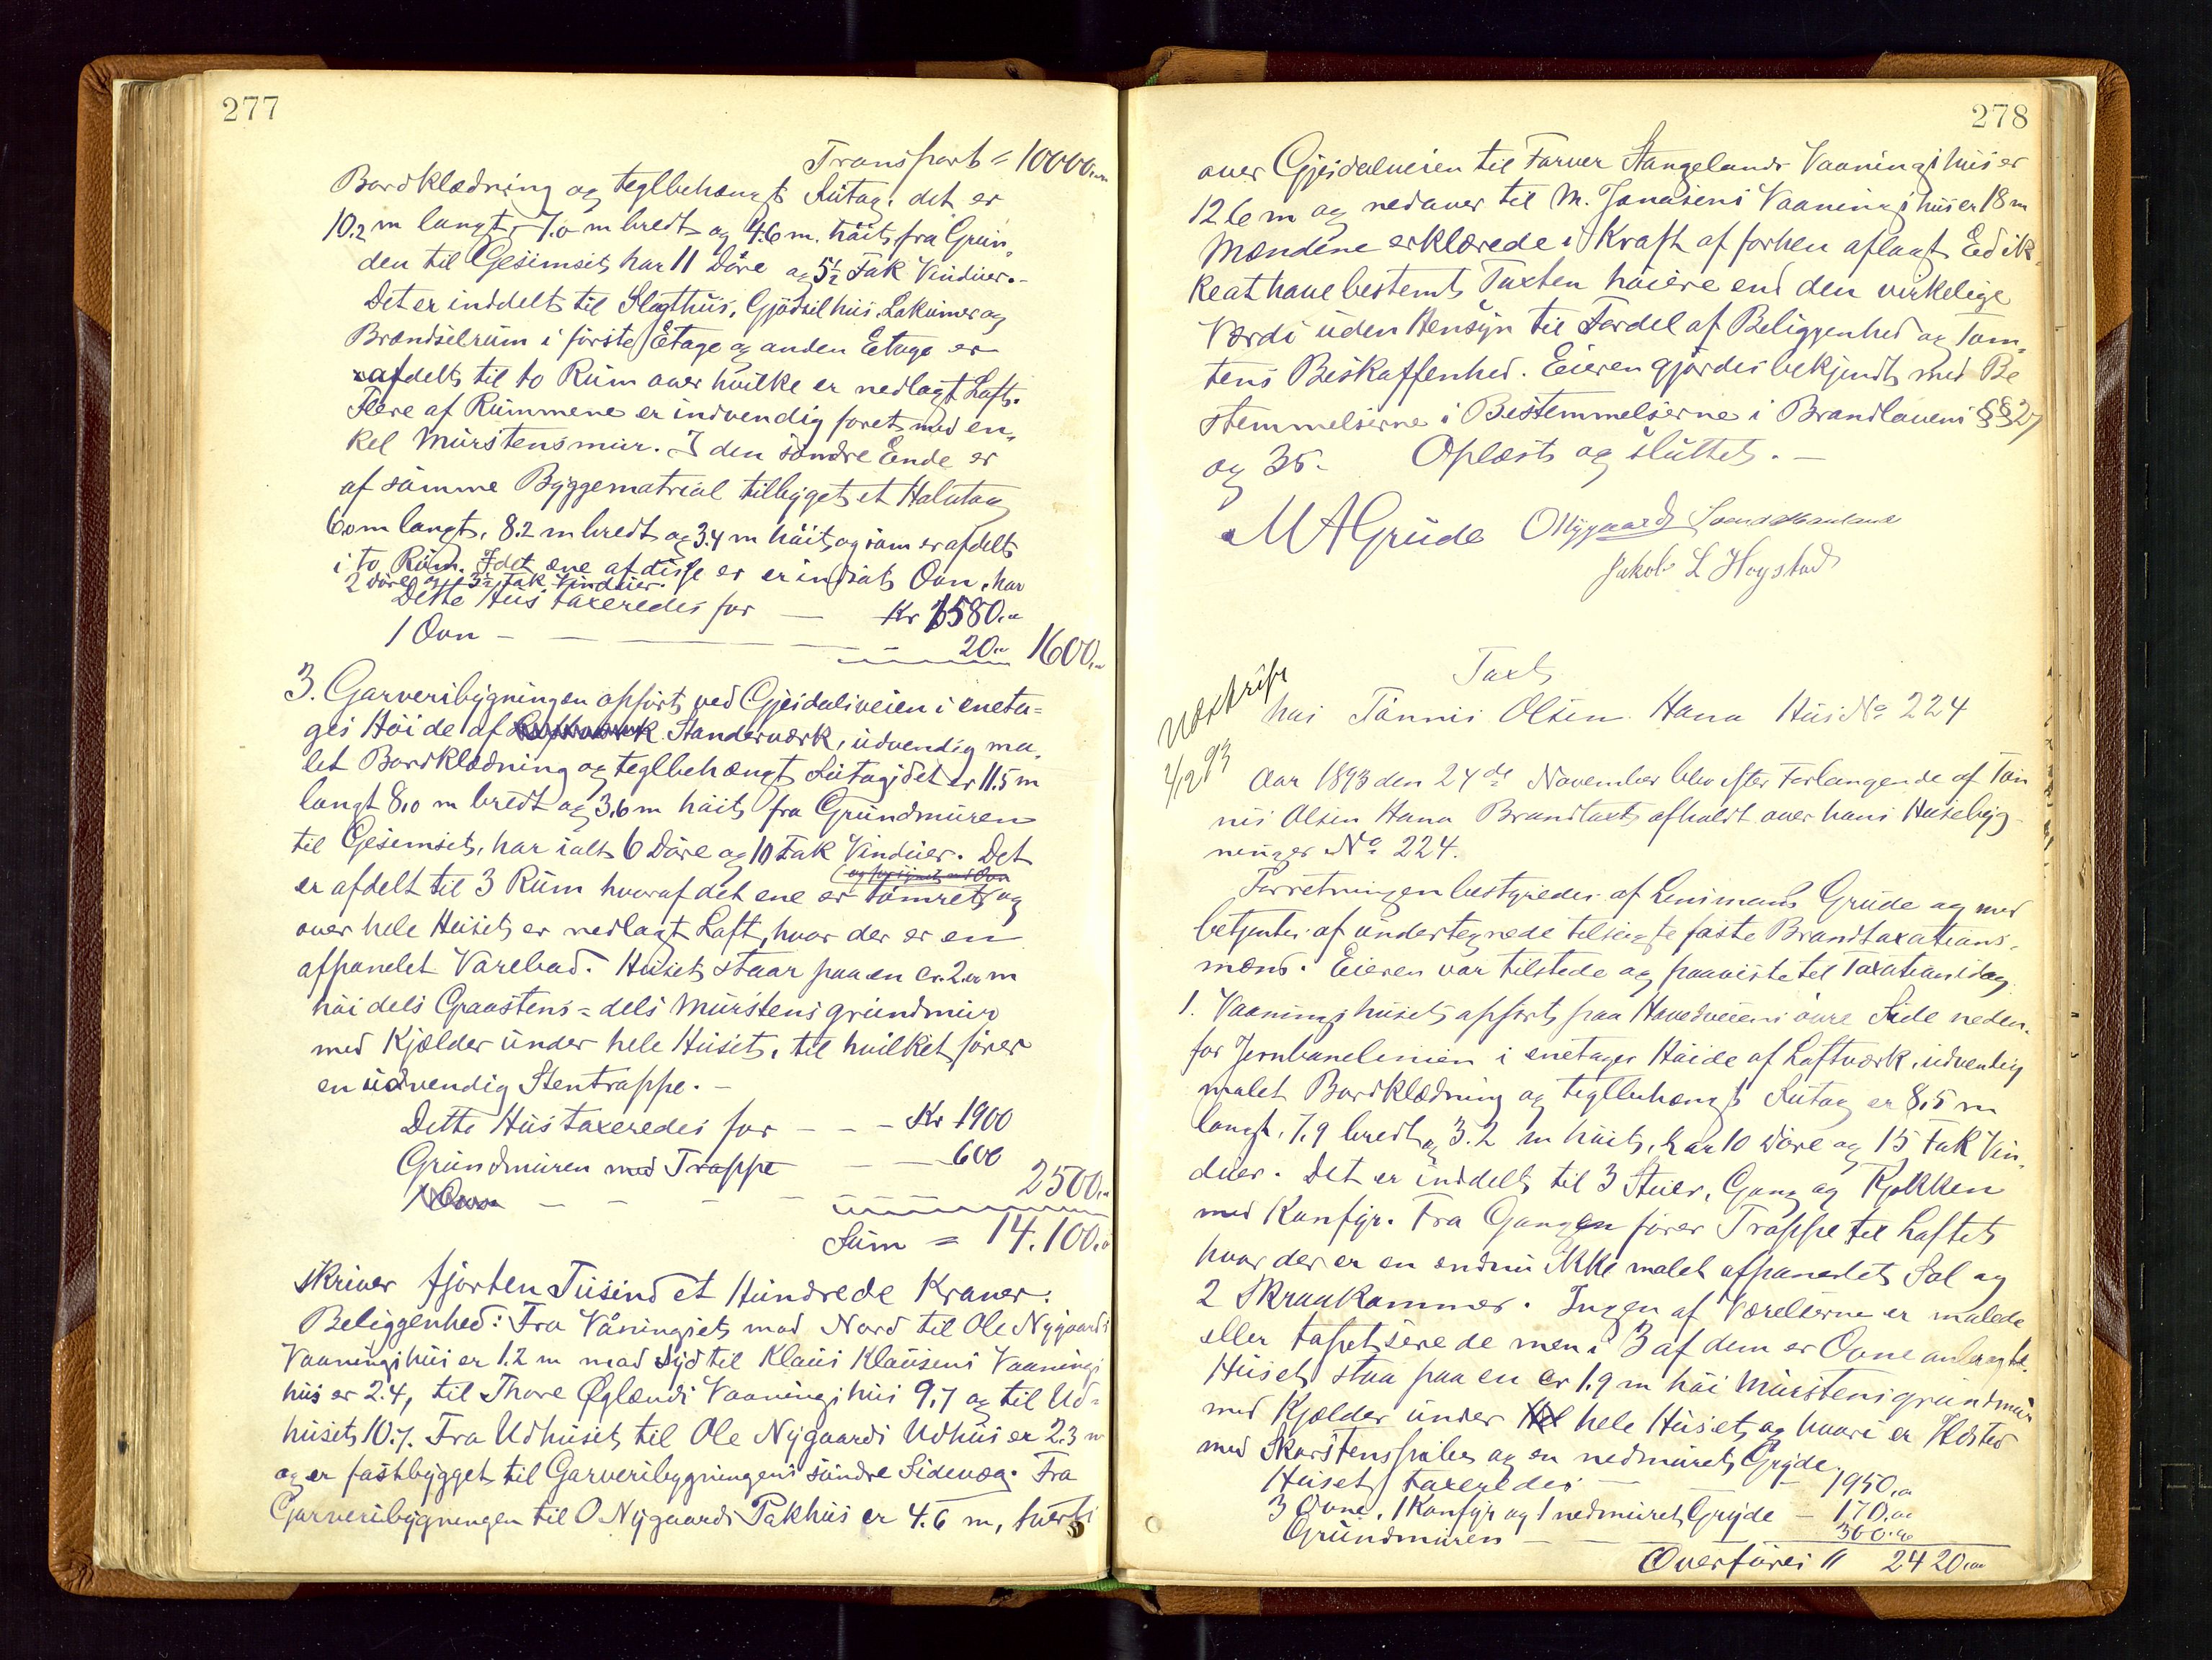 277
Transport = 10000,00
Bordklædning og teglbehængt Sutag. det er
10.2 m langt, 7.0 m bredt og 4.6 m. høit fra Grun,
den til Gesimset, har 11 Døre og 5½ Fak Vinduer.-
Det er inddelt til Slagthus, Gjødselhus, Lokumer og
Brændselrum i første Etage og anden Etage er
afdelt til to Rum over hvilke er nedlagt Loft.
Flere af Rummene er indvendig foret med en,
kel Murstensmur. I den søndre Ende er
af samme Byggematrial tilbyget et Halvtag
6.0 m langt, 8.2 m bredt og 3.4 m høit og som er afdelt
i to Rum. I det ene af disse er er indsat Ovn, har
2 Døre og 3½ Fak Vinduer.
Dette Hus taxeredes for — Kr 1580.00
1 Ovn - — — 20.00 1600,00
3. Garveribygningen opført ved Gjesdalsveien i eneta=
ges Høide af Standerværk, udvendig ma,
let Bordklædning og teglbehængt Sutag; det er 11.5 m
langt 8,0 m bredt og 3,6 m høit fra Grundmuren
til Gesimset, har ialt 6 Døre og 10 Fak Vinduer. Det
(og forsynet med Ovn
er afdelt til 3 Rum hvoraf det ene er tømret og
over hele Huset er nedlagt Loft, hvor der er en
afpanelet Varebod. Huset staar paa en cr. 2.0 m
høi dels Graastens = dels Murstens grundmur
med Kjælder under hele Huset, til hvilket fører
en udvendig Stentrappe. -
Dette Hus taxeredes for - - - Kr 1900
Grundmuren med Trappe — — 600
1 Ovn - - - - 2500,00
Sum = 14.100,00
skriver fjorten Tusind et Hundrede Kroner.
Beliggenhed: Fra Våningset mod Nord til Ole Nygaards
Vaaningshus er 1.2 m mod Syd til Klaus Klausens Vaanings
hus er 2.4, til Thore Øglænds Vaaningshus 9,7 og til Ud=
huset 10.7. Fra Udhuset til Ole Nygaards Udhus er 2.3 m
og er fastbygget til Garveribygningens søndre Sidevæg. Fra
Garveribygningen til O Nygaards Pakhus er 4.6 m, tvert
278
over Gjesdalveien til Farver Stangelands Vaaningshus er
12.6 m og nedover til M. Jonasens Vaaningshus er 18 m
Mændene erklærede i Kraft af forhen aflagt Ed ik,
ke at have bestemt Taxten høiere end den virkelige
Værdi uden Hensyn til Fordel af Beliggenhed og Tom,
tens Beskaffenhed. Eieren gjordes bekjendt med Be
stemmelserne i Bestemmelserne i Brandlovens §§ 27
og 35. Oplæst og sluttet. —
MAGrude ONygaard
Jakob L Hogstad
Taxt
hos Tønnis Olsen Hana Hus No 224
2/12 93
Aar 1893 den 24de November blev efter Forlangende af Tøn
nis Olsen Hana Brandtaxt afholdt over hans Husebyg-
ninger No 224.
Forretningen bestyredes af Lensmand Grude og med
betjentes af undertegnede tilsagte faste Brandtaxations,
mænd. Eieren var tilstede og paaviste til Taxationsdag
1. Vaaningshuset opført paa Hovedveiens øvre Side neden,
for Jernbanelinien i enetages Høide af Loftværk, udvendig
malet Bordklædning og teglbehængt Sutag er 8,5 m
langt, 7,9 bredt og 3.2 m høit, har 10 Døre og 15 Fak Vin,
duer. Det er inddelt til 3 Stuer, Gang og Kjøkken
med Komfyr. Fra Gangen fører Trappe til Loftet
hvor der er en endnu ikke malet afpanelet Sal og
2 Skraakammer. Ingen af Værelserne er malede
eller tapetserede men i 3 af dem er Ovne anbragte.
Huset staa paa en cr 1.9 m høi Murstensgrundmur
med Kjælder under hele Huset og hvori er Ildsted
med Skorstenspibe og en nedmuret Gryde.
Huset taxeredes — — 1950,00
3 Ovne, 1 Komfyr og 1 nedmuret Gryde — 170,00
Grundmuren — — — 300.00
Overføres " 2420,00